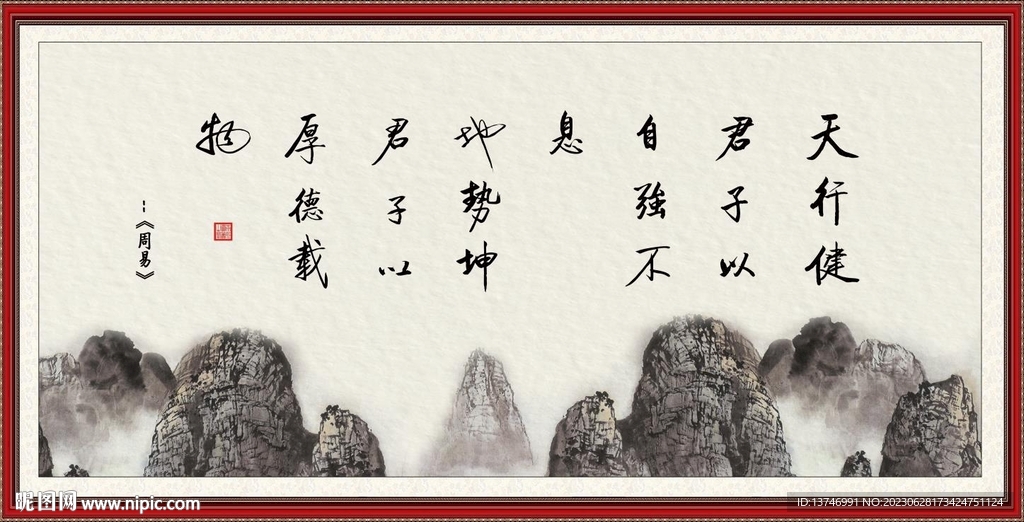 天行健
君子以
自強不
息
地势坤
君子以
厚德载
物
--《周易》
昵图网 www.nipic.com
ID:13746991 NO:20230628173424751124